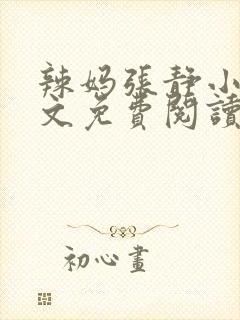 辣妈張静小
文免費閱讀
初心畫